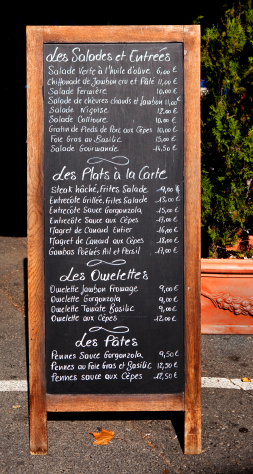 Les Salades et Entrées
Salade Verte à l'huile d'olive 6,00 €
Chiffonade de Jambon cru et Pâté 11,00 €
Salade Fermière 10,00 €
Salade de chèvres chauds et Jambon 11,00 €
Salade Niçoise 12,00 €
Salade 10,00 €
Gratin de Pieds de Porc aux Cèpes 10,00 €
Foie Gras au Basilic 15,00 €
Salade Gourmande 14,50 €
Les Plats à la Carte
Steak hâché, Frites Salade €
Entrecôte Grillée, Frites Salade 13,00 €
Entrecôte Sauce Gorgonzola 15,00 €
Entrecôte Sauce aux Cèpes 17,00 €
Magret de Canard Entier 16,00 €
Magret de Canard aux Cèpes 18,00 €
Gambas Poêlées Ail et Persil 17,00 €
Les Omelettes
Omelette Jambon Fromage 9,00 €
Omelette Gorgonzola 9,00 €
Omelette Tomate Basilic 9,00 €
Omelette aux Cèpes 12,00 €
Les Pâtes
Pennes Sauce Gorgonzola 9,50 €
Pennes au Foie Gras et Basilic 12,50 €
Pennes sauce aux Cèpes 12,50 €